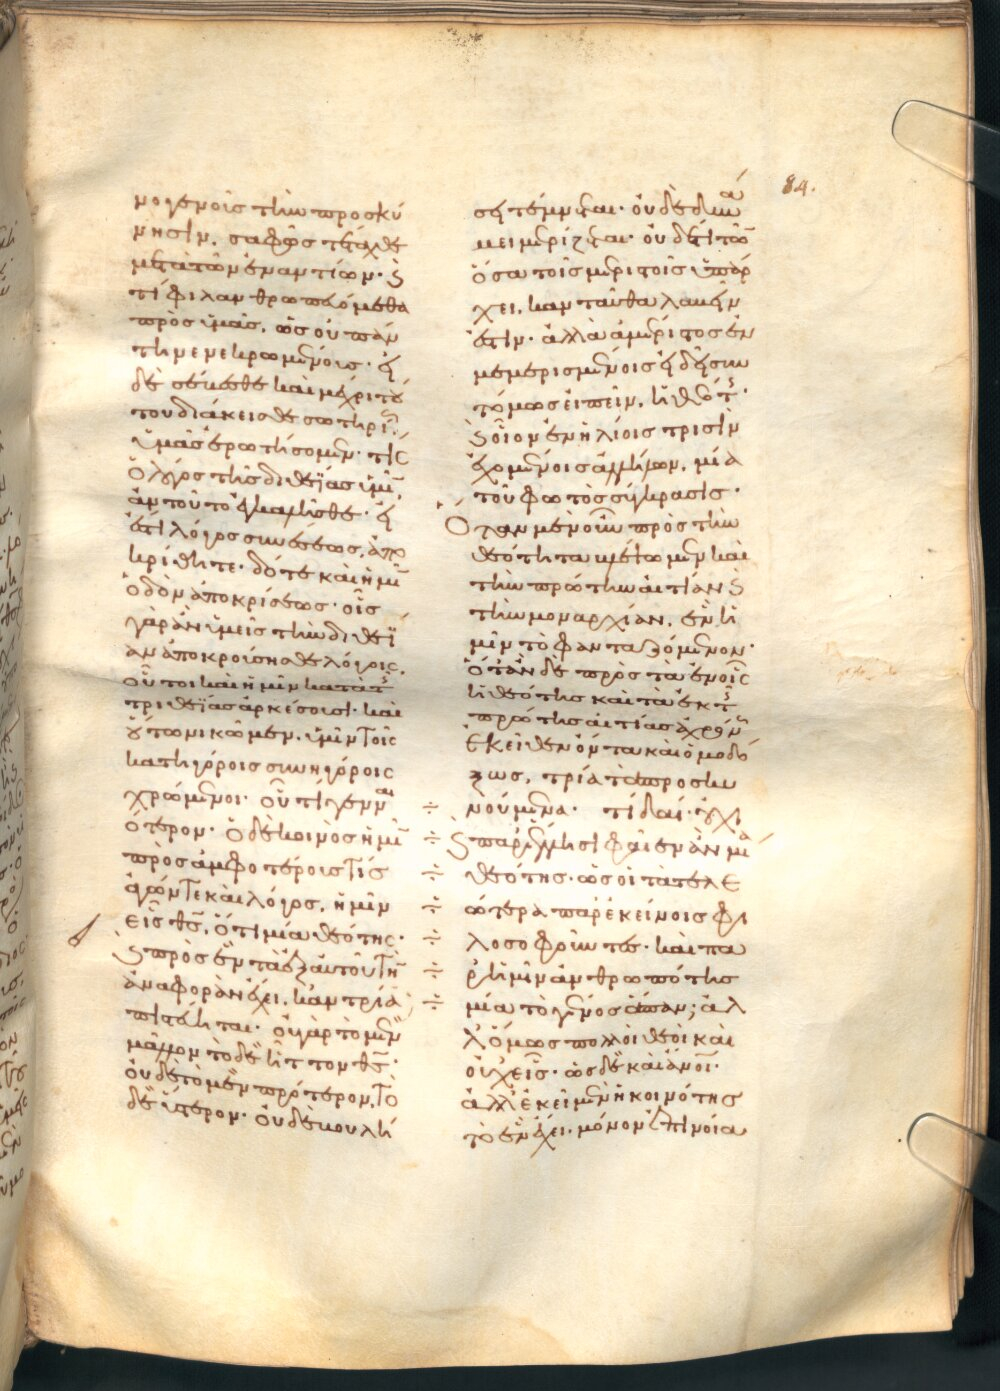 84.
μογενοῖς τὴν προσκύ
νησιν, σαφῶς τετάχθε
μετὰ τῶν ἐναντίων· ϗ
τί φιλανθρωπευόμεθα
πρὸς ὑμᾶς, ὡς οὐ πάν
τη νενεκρωμένοις· εἰ
δὲ σέβεσθε καὶ μέχρι τού
του διάκεισθε σωτηρί(ως),
ὑμᾶς ἐρωτήσομεν· τίς
ὁ λόγος τῆς διθεΐας ὑμῖν,
ἂν τοῦτο ἐγκαλῆσθε· εἰ
ἔστι λόγος συνέσεως, ἀπο
κρίθητε· δότε καὶ ἡμῖν
ὁδὸν ἀποκρίσεως· οἷς
γὰρ ἂν ὑμεῖς τὴν διθεΐ
αν ἀποκρούσησθε λόγοις,
οὗτοι καὶ ἡμῖν κατὰ τῆς
τριθεΐας ἀρκέσουσι· καὶ
οὕτω νικῶμεν, ὑμῖν τοῖς
κατηγόροις συνηγόροις
χρώμενοι· οὗ τί γενναι
ότερον· ὁ δὲ κοινὸς ἡμῖν
πρὸς ἀμφοτέρους τίς
ἀγών τε καὶ λόγος, ἡμῖν
εἷς θς, ὅτι μία θεότης·
ϗ πρὸς ἓν τὰ ἐξ αὐτοῦ τὴν
ἀναφορὰν ἔχει, κἂν τρία
πιστεύηται· οὐ γὰρ τὸ μὲν
μᾶλλον τὸ δὲ ἧττον θς·
οὐδὲ τὸ μὲν πρότερον, τὸ
δὲ ὕστερον· οὐδὲ βουλή
σει τέμνεται· οὐδὲ δυνά
μει μερίζεται· οὐδέ τι τῶν
ὅσα τοῖς μεριστοῖς ὑπάρ
χει, κἀνταῦθα λαβεῖν
ἔστιν· ἀλλὰ ἀμέριστος ἐν
μεμερισμένοις εἰ δεῖ συν
τόμως εἰπεῖν, ἡ θεότης·
ϗ οἷον ἐν ἡλίοις τρισὶν
ἐχομένοις ἀλλήλων, μία
τοῦ φωτὸς σύγκρασις·
Ὅταν μὲν οὖν πρὸς τὴν
θεότητα βλέψωμεν καὶ
τὴν πρώτην αἰτίαν ϗ
τὴν μοναρχίαν, ἓν ἡ
μῖν τὸ φανταζόμενον·
ὅταν δὲ πρὸς τὰ ἐν οἷς
ἡ θεότης καὶ τὰ ἐκ τῆς
πρώτης αἰτίας ἀχρόνως
ἐκεῖθεν ὄντα καὶ ὁμοδό
ξως, τρία τὰ προσκυ
νούμενα· τί δαί· οὐχὶ
ϗ παρ' ἕλλησι φαῖεν ἂν μία
θεότης· ὡς οἱ τὰ τελε
ώτερα παρ' ἐκείνοις φι
λοσοφοῦντες· καὶ πα
ρ' ἡμῖν ἀνθρωπότης
μία τὸ γένος ἅπαν; ἀλ
λ' ὅμως πολλοὶ θεοὶ καὶ
οὐχ εἷς· ὡς δὲ καὶ ἄνοι·
ἀλλ' ἐκεῖ μὲν ἡ κοινότης
τὸ ἓν ἔχει· μόνον ἐπινοία